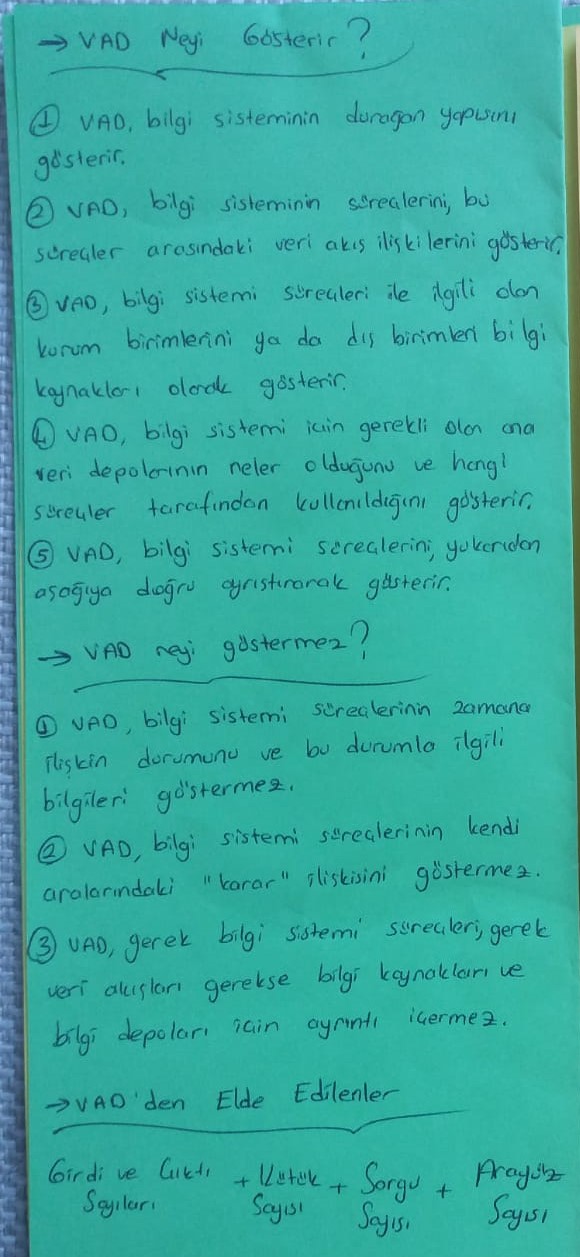 → VAD Neyi Gösterir?
① VAD, bilgi sisteminin durağan yapısını
gösterir.
② VAD, bilgi sisteminin süreçlerini, bu
süreçler arasındaki veri akış ilişkilerini gösterir.
③ VAD, bilgi sistemi süreçleri ile ilgili olan
kurum birimlerini ya da dış birimleri bilgi
kaynakları olarak gösterir.
④ VAD, bilgi sistemi için gerekli olan ana
veri depolarının neler olduğunu ve hangi
süreçler tarafından kullanıldığını gösterir.
⑤ VAD, bilgi sistemi süreçlerini, yukarıdan
aşağıya doğru ayrıştırarak gösterir.
→ VAD neyi göstermez?
① VAD, bilgi sistemi süreçlerinin zamana
ilişkin durumunu ve bu durumla ilgili
bilgileri göstermez.
② VAD, bilgi sistemi süreçlerinin kendi
aralarındaki "karar" ilişkisini göstermez.
③ VAD, gerek bilgi sistemi süreçleri, gerek
veri akışları gerekse bilgi kaynakları ve
bilgi depoları için ayrıntı içermez.
→ VAD'den Elde Edilenler
Girdi ve Çıktı + Kütük + Sorgu + Arayüz
Sayıları Sayısı Sayısı Sayısı